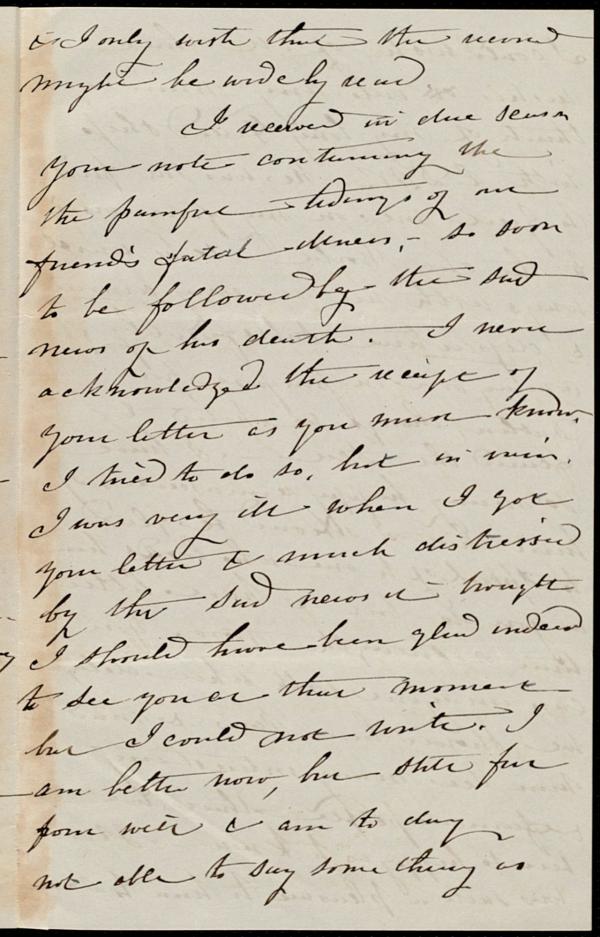 & I only wish that the record
might be widely read
I received in due season
your note containing the
the painful tidings of our
friend's fatal illness, - so soon
to be followed by the sad
news of his death. I never
acknowledged the receipt of
your letter as you must know.
I tried to do so, but in vain.
I was very ill when I got
your letter & much distressed
by the sad news it brought
I should have been glad indeed
to see you at that moment
but I could not write. I
am better now, but still far
from well & am to day
not able to say some thing as